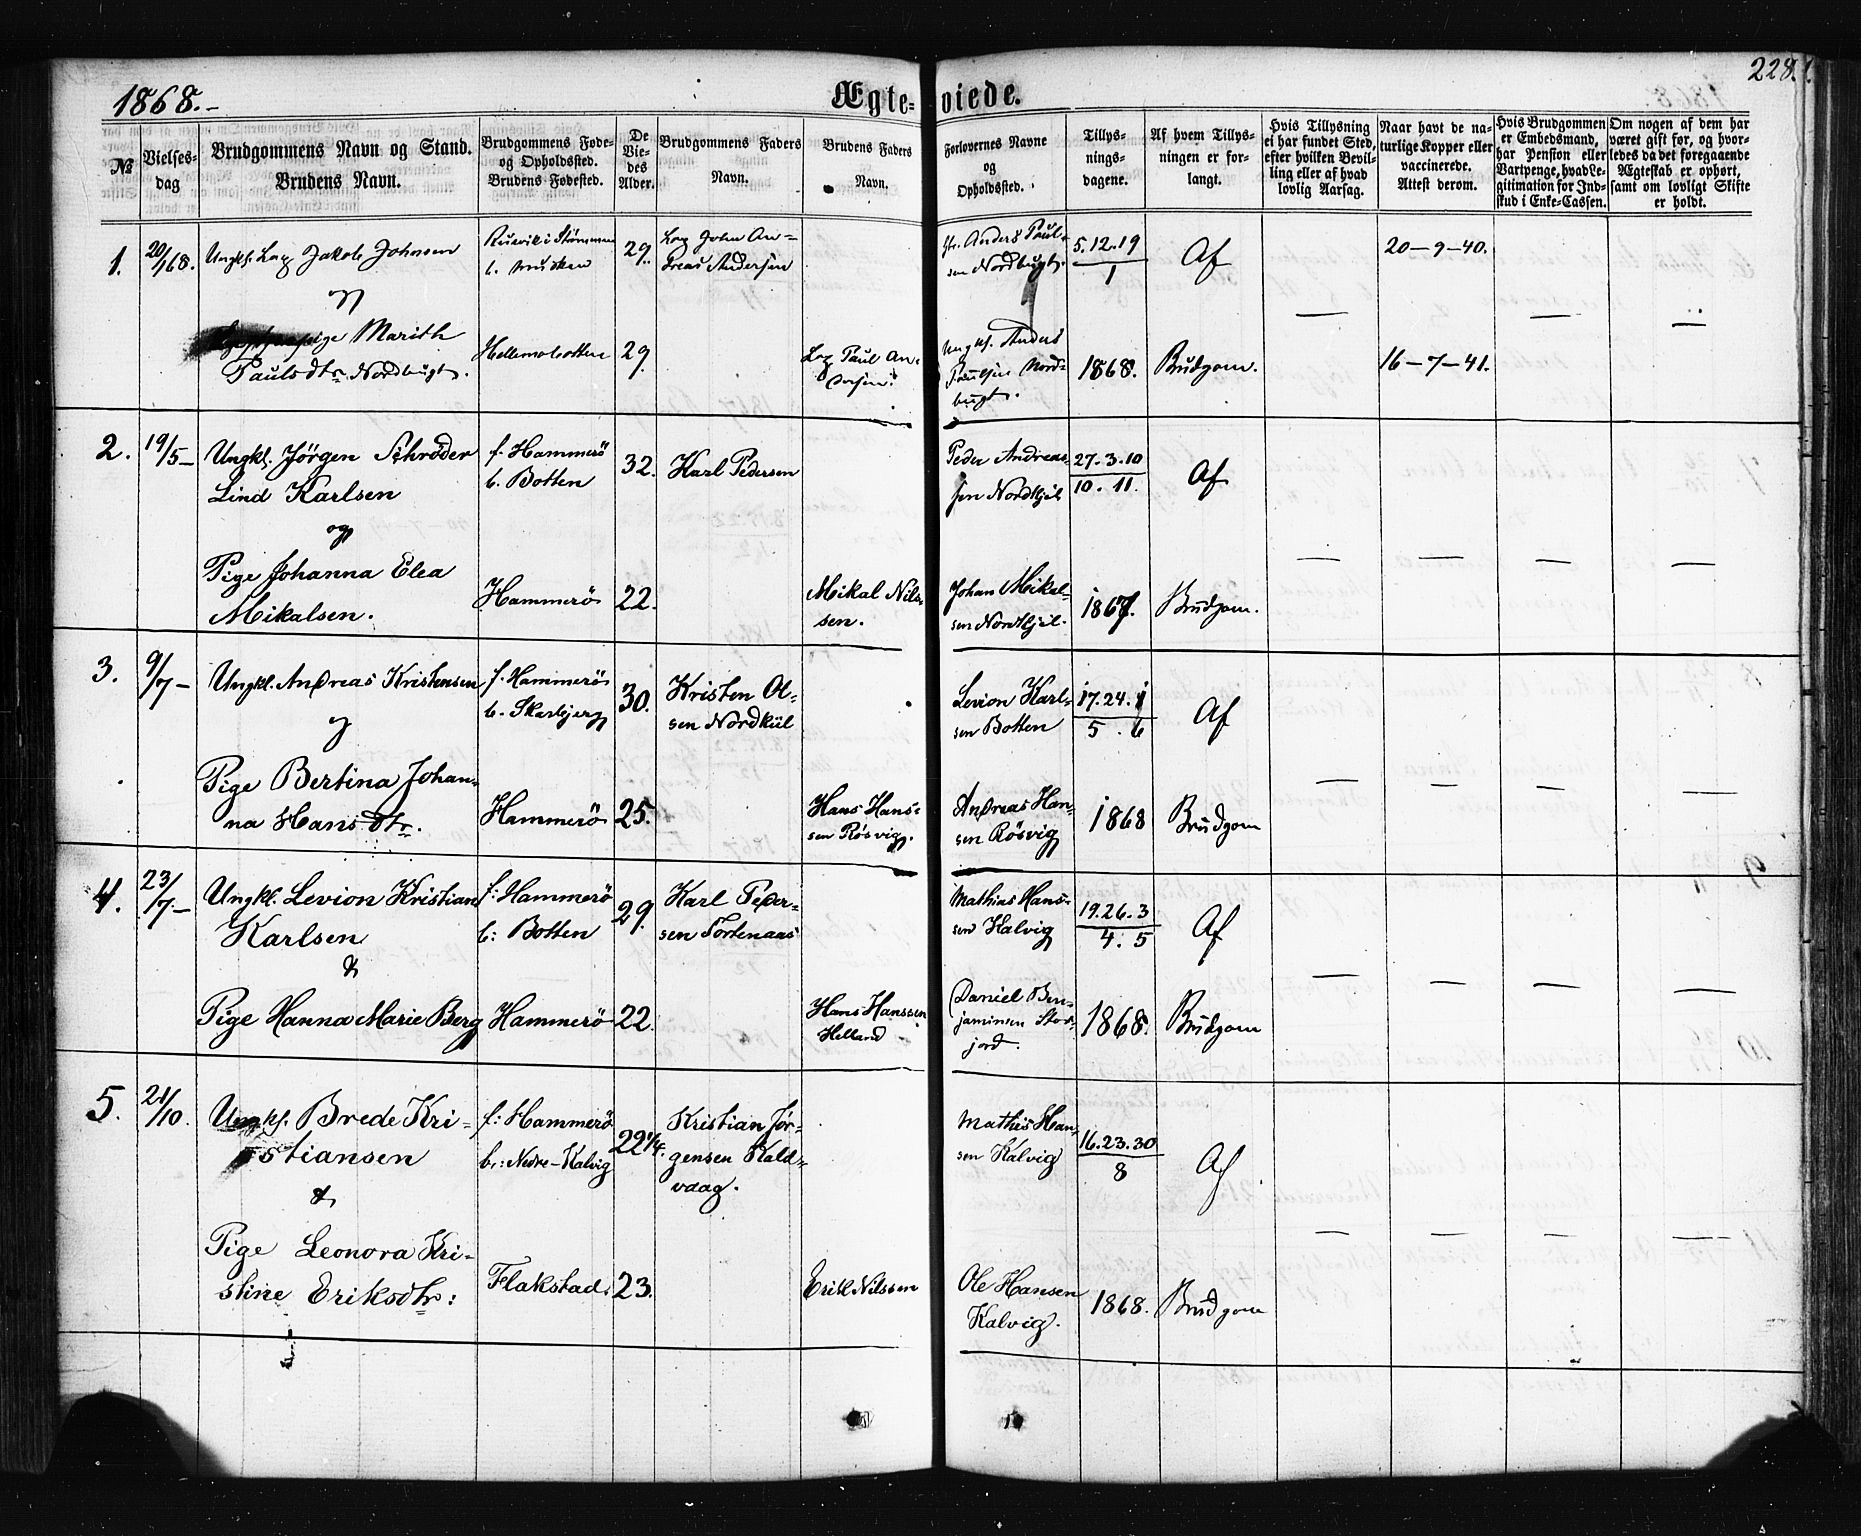 1868.-
Ægte=viede.
228.
№
Vielses-dag
Brudgommens Navn og Stand.
Brudens Navn.
Brudgommens Føde-
og Opholdssted.
Brudens Fødested.
De
Vie-
des
Alder.
Brudgommens Faders
Navn.
Brudens Faders
Navn.
Forlovernes Navne
og
Opholdssted.
Tillys-
nings-
dagene.
Af hvem Tillys-
ningen er for-
langt.
Hvis Tillysning
ei har fundet Sted,
efter hvilken Bevil-
ling eller af hvad
lovlig Aarsag.
Naar havt de na-
turlige Kopper eller
vaccinerede.
Attest derom.
Hvis Brudgommen
er Embedsmand,
har Pension eller
Vartpenge, hvad Le-
gitimation for Ind-
skud i Enke-Cassen.
Om nogen af dem har
været gift før, og hvor-
ledes da det foregaaende
Ægteskab er ophørt,
samt om lovligt Skifte
er holdt.
1.
20/1 68.
Ungk. Lap Jakob Johnsen
og
Marith
Paulsdtr. Nordbugt.
b. Musken
Hellemobotten
29.
29.
Lap John An-
dreas Andersen
Lap Paul An-
dersen.
Anders Paul-
sen Nordbugt.
Ungkf. Anders
Paulsen Nord-
bugt.
5.12.19
1
1868.
Af
Brudgom.
—
20-9-40.
16-7-41.
—
—
2.
19/5 -
Ungkl. Jörgen Schröder
Lind Karlsen
og
Pige Johanna Elea
Mikalsen.
f. Hammerö
b. Botten
Hammerö
32.
22.
Karl Pedersen
Mikal Nils-
sen.
Peder Andreas-
sen Nordkjil
Johan Mikal-
sen Nordkjil.
27.3.10
10. 11.
1867.
Af
Brudgom.
—
—
—
—
3.
9/7 -
Ungkl. Andreas Kristensen
og
Pige Bertina Johan-
na Hansdtr.
f. Hammerö
b. Skarbjerg
Hammerö
30.
25.
Kristen Ol-
sen Nordkül
Hans Hans-
sen Rösvig.
Levion Karl-
sen Botten
Andreas Han-
sen Rösvig
17.24.1
5 . 6
1868
Af
Brudgom
—
—
—
—
4.
23/7 -
Ungkl. Levion Kristian
Karlsen
&
Pige Hanna Marie Berg
f: Hammerö
b: Botten
Hammerö
29.
22.
Karl Peder-
sen Tortenaas
Hans Hanssen
Helland
Mathias Hans-
sen Kalvig
Daniel Ben-
jaminsen Stor-
jord.
19.26.3
4. 5
1868.
Af
Brudgom
—
—
—
—
5.
21/10.
Ungkf. Brede Kri-
stiansen
&
Pige Leonora Kri-
stine Eriksdtr:
f: Hammerö
b: Nedre-Kalvig
Flakstad.
22 1/4.
23.
Kristian Jør-
gensen Kald-
vaag.
Erik Nilssen
Mathis Han-
sen Kalvig
Ole Hansen
Kalvig.
16.23.30
8
1868.
Af
Brudgom
—
—
—
—